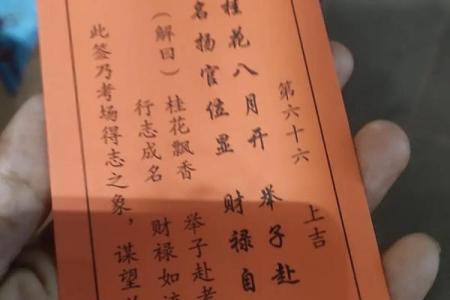 第六十六 上吉
桂花八月开 举子赴
名扬官位显 财禄自
（解曰） 桂花飘香 举子赴考
行志成名 财禄如
此签乃考场得志之象，谋望